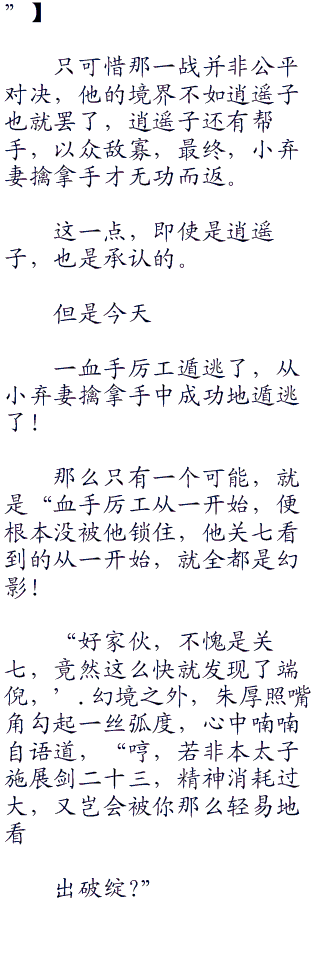 ”】
只可惜那一战并非公平
对决，他的境界不如逍遥子
也就罢了，逍遥子还有帮
手，以众敌寡，最终，小弃
妻擒拿手才无功而返。
这一点，即使是逍遥
子，也是承认的。
但是今天
一血手厉工遁逃了，从
小弃妻擒拿手中成功地遁逃
了！
那么只有一个可能，就
是“血手厉工从一开始，便
根本没被他锁住，他关七看
到的从一开始，就全都是幻
影！
“好家伙，不愧是关
七，竟然这么快就发现了端
倪，’.幻境之外，朱厚照嘴
角勾起一丝弧度，心中喃喃
自语道，“哼，若非本太子
施展剑二十三，精神消耗过
大，又岂会被你那么轻易地
看
出破绽?”